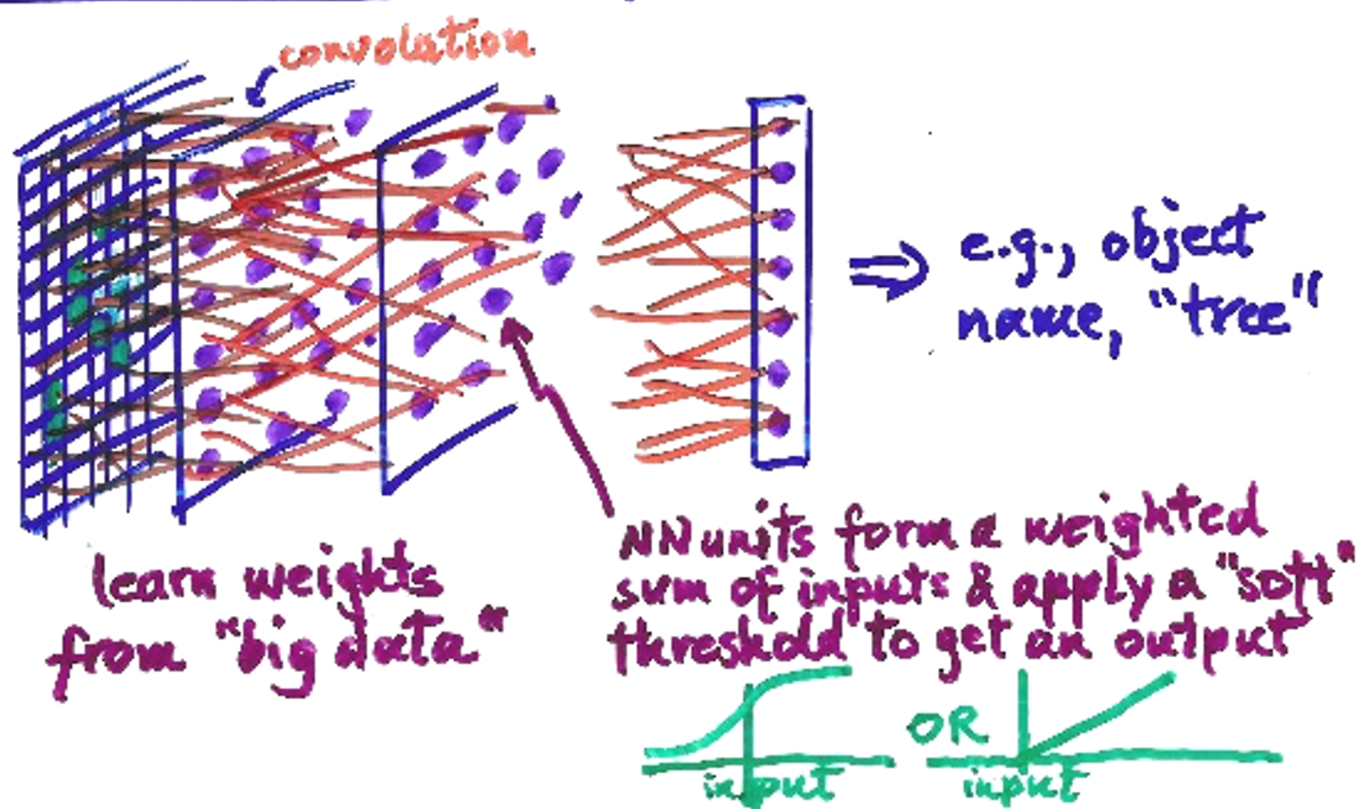 convolution
e.g., object
name, "tree"
learn weights
from "big data"
NN units form a weighted
sum of inputs & apply a "soft"
threshold to get an output
OR
input
input